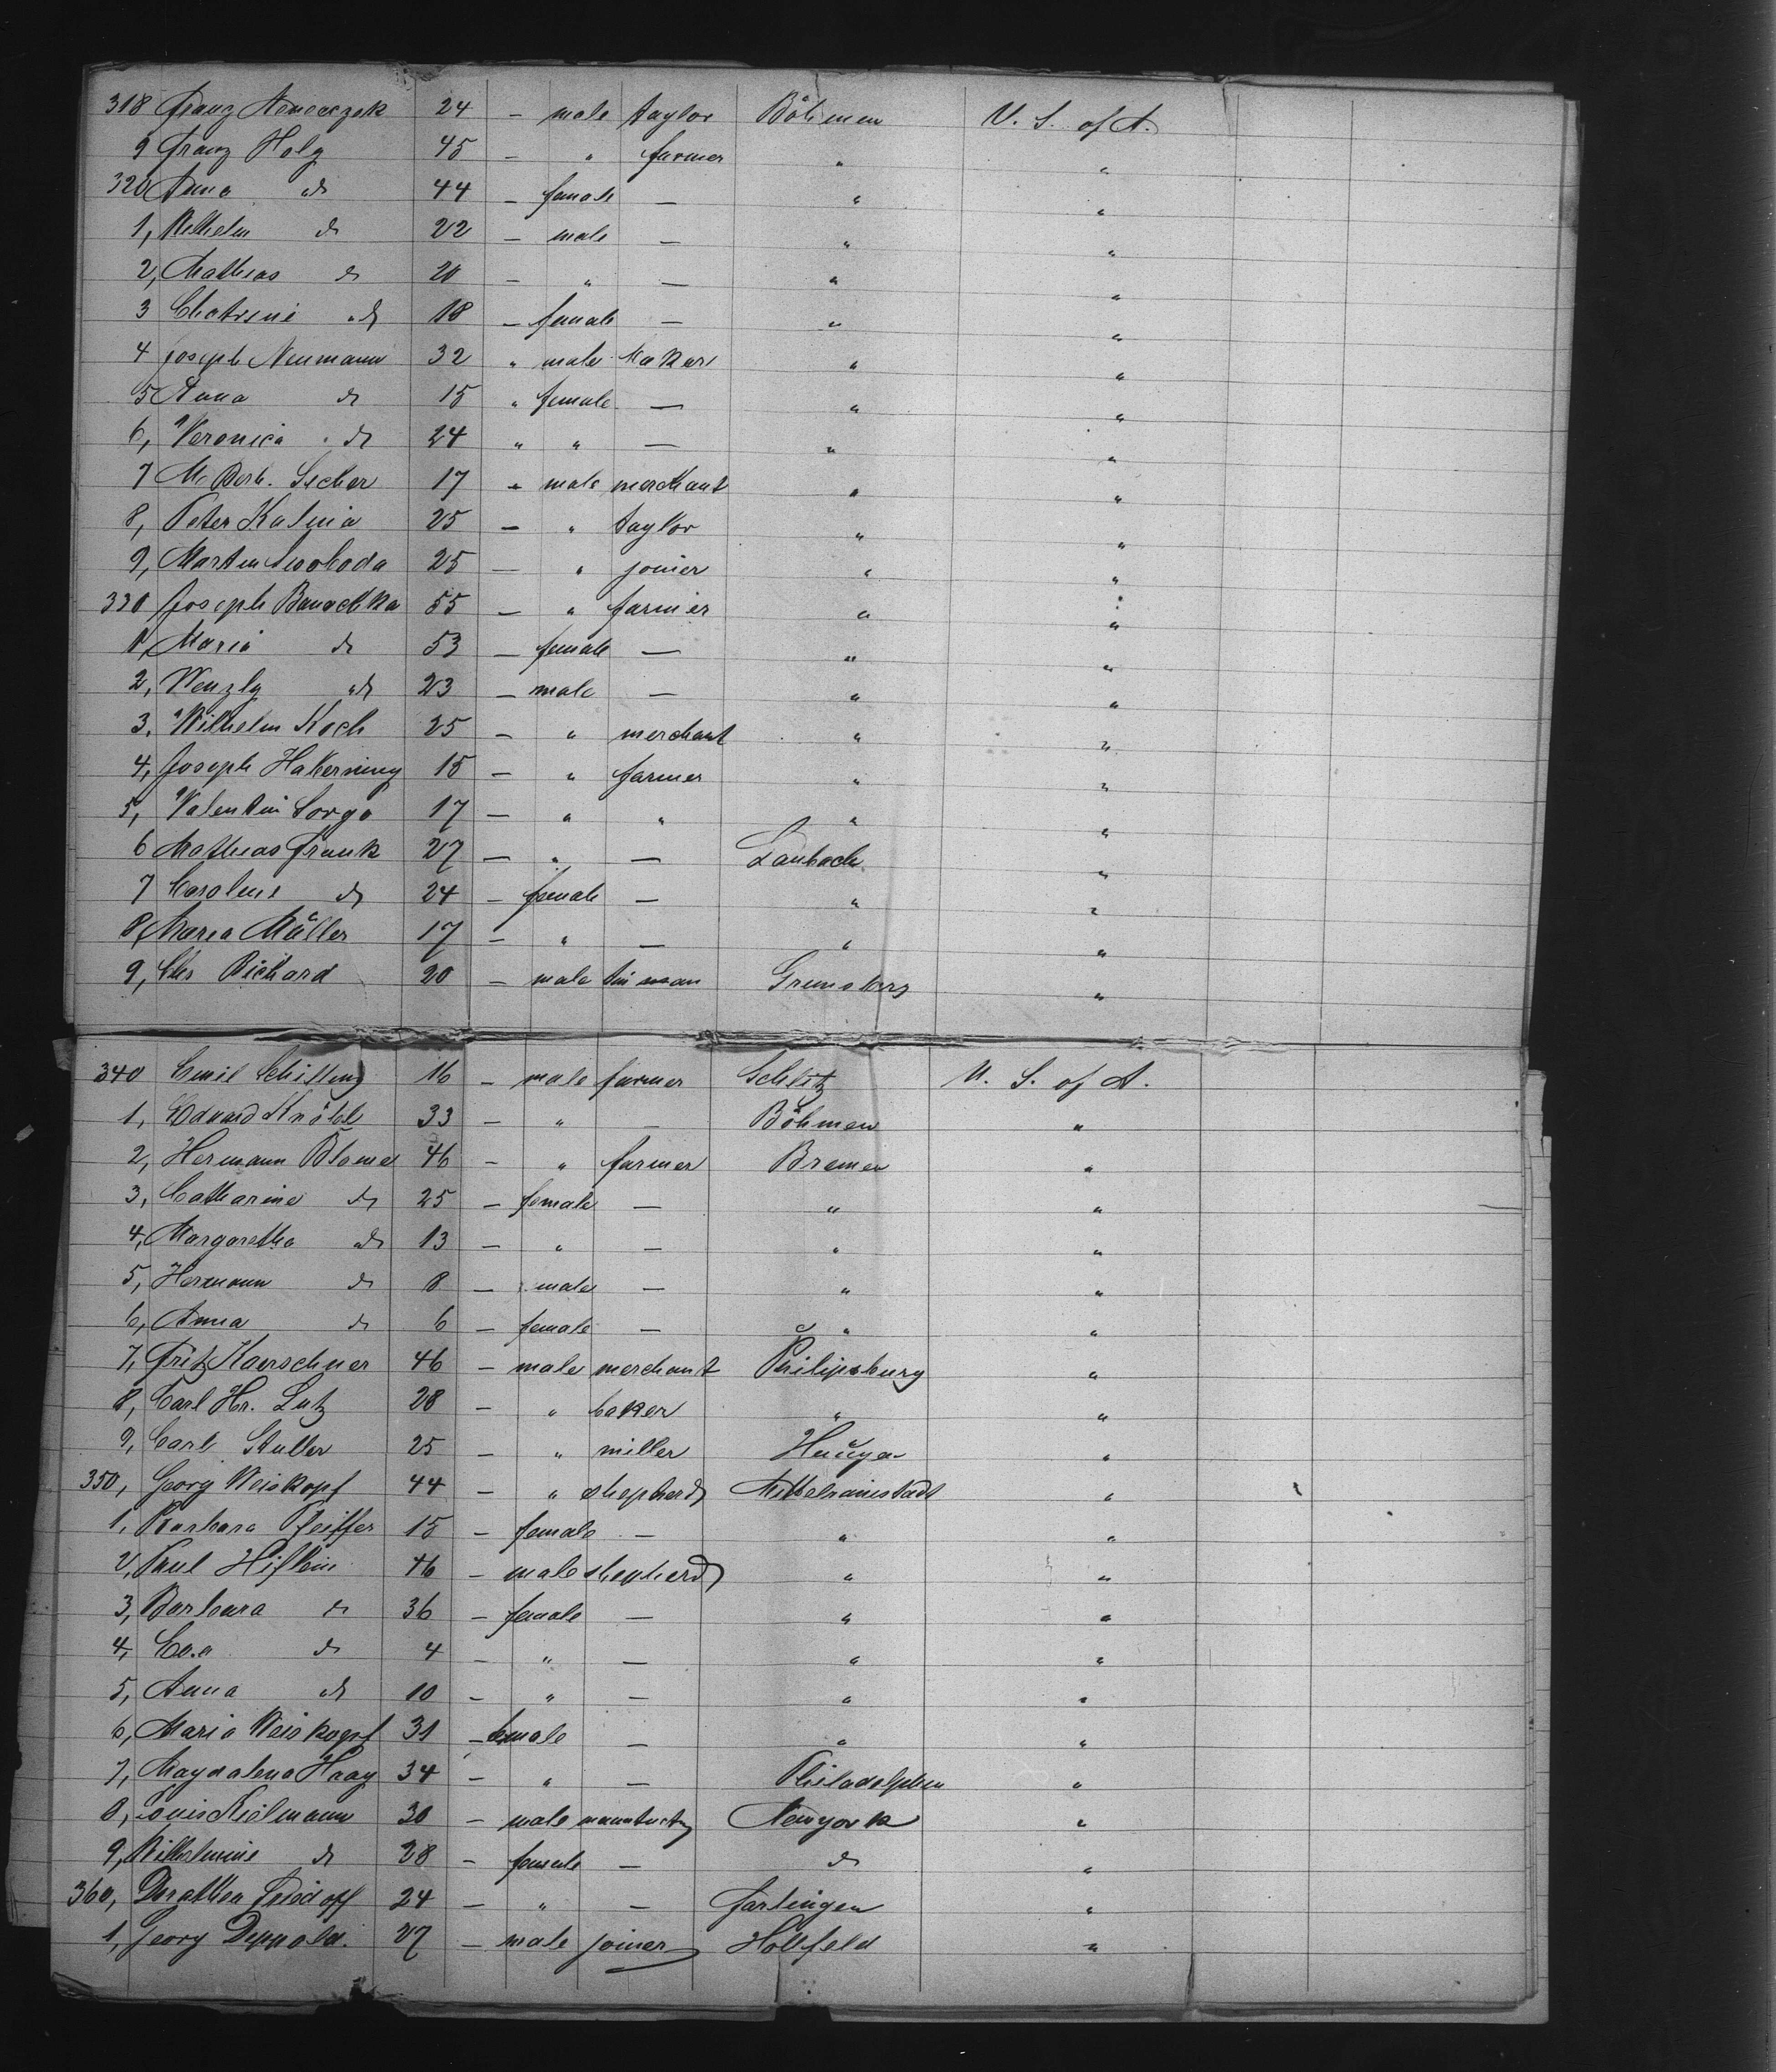 318 Franz 24 – male taylor Böhmen U. S. of A.
9 Franz Holz 45 – " farmer " "
320 Anna do 44 – female – " "
1, Wilhelm do 22 – male – " "
2, Mathias do 20 – " – " "
3 do 18 – female – " "
4 Joseph Neumann 32 " male " "
5 Anna do 15 " female – " "
6, Veronica do 24 " " – " "
7 17 " male merchant " "
8, Peter Kalina 25 – " taylor " "
9, Martin Swoboda 25 – " joiner " "
330 Joseph 55 – " farmer " "
1, Maria do 53 – female – " "
2, Wenzly do 23 – male – " "
3, Wilhelm Koch 25 – " merchant " "
4, Joseph 15 – " farmer " "
5, Valentin Sorge 17 – " " " "
6 Mathias Frank 27 – " – Laubach "
7 Caroline do 24 – female – " "
8, Maria Müller 17 – " – " "
9, Chs Richard 20 – male tin man "
340 Emil Schilling 16 – male farmer Schlitz U. S. of A.
1, Eduard 33 – " – Böhmen "
2, Hermann Blome 46 – " farmer Bremen "
3, Catharine do 25 – female – " "
4, Margaretha do 13 – " – " "
5, Hermann do 8 – male – " "
6, Anna do 6 – female – " "
7, Fritz Kaerschner 46 – male merchant Philipsburg "
8, Carl Hr. Lutz 28 – " baker " "
9, Carl Stuller 25 – " miller "
350, Georg Weiskopf 44 – " shepherd "
1, Barbara Pfeiffer 15 – female – " "
2, Paul 46 – male shepherd " "
3, Barbara do 36 – female – " "
4, do 4 – " – " "
5, Anna do 10 – " – " "
6, Maria Weiskopf 31 – female – " "
7, Magdalena Haag 34 – " – "
8, Louis 30 – male Newyork "
9, Wilhelmine do 28 – female – do "
360, Dorathea 24 – " – "
1, Georg Deppold. 27 – male joiner Hollfeld "